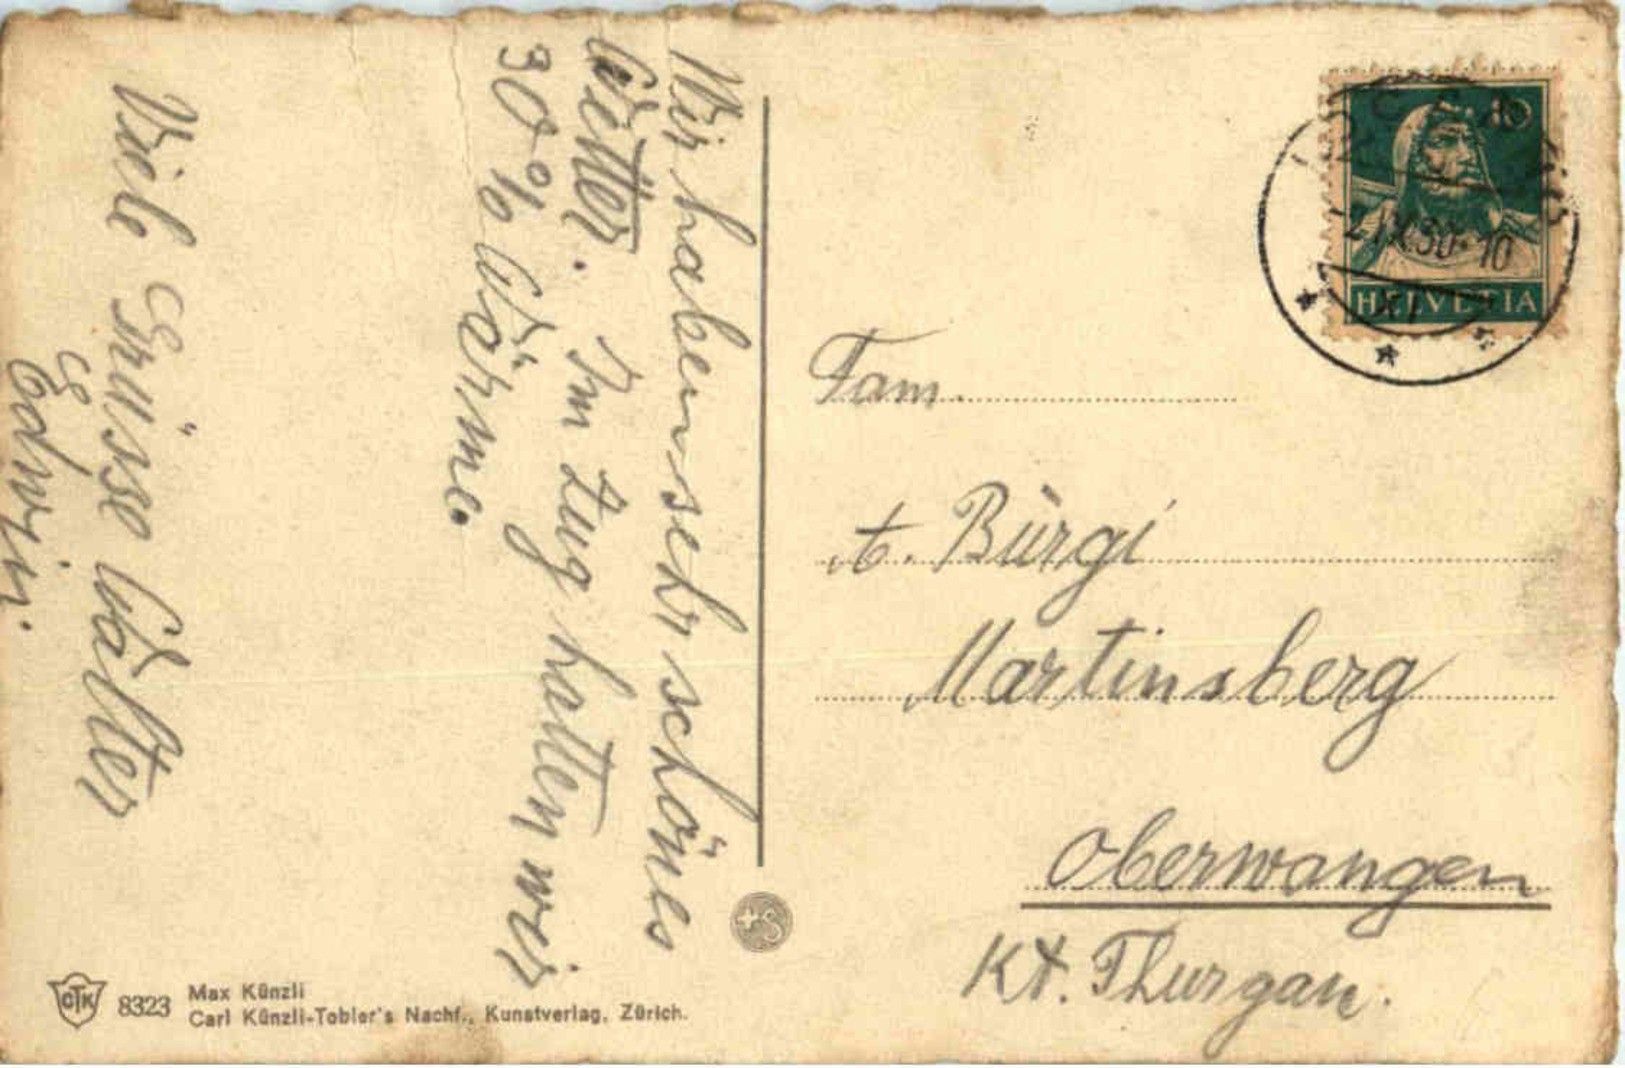 Wir haben sehr schönes
Wetter. Im Zug hatten wir
30% Wärme.
Viele Grüsse Walter
Edwin.
Fam.
t. Bürgi
Martinsberg
Oberwangen
Kt. Thurgau.
HELVETIA
10
IX.30-10
XI
CTK
8323
Max Künzli
Carl Künzli-Tobler's Nachf., Kunstverlag, Zürich.
+S